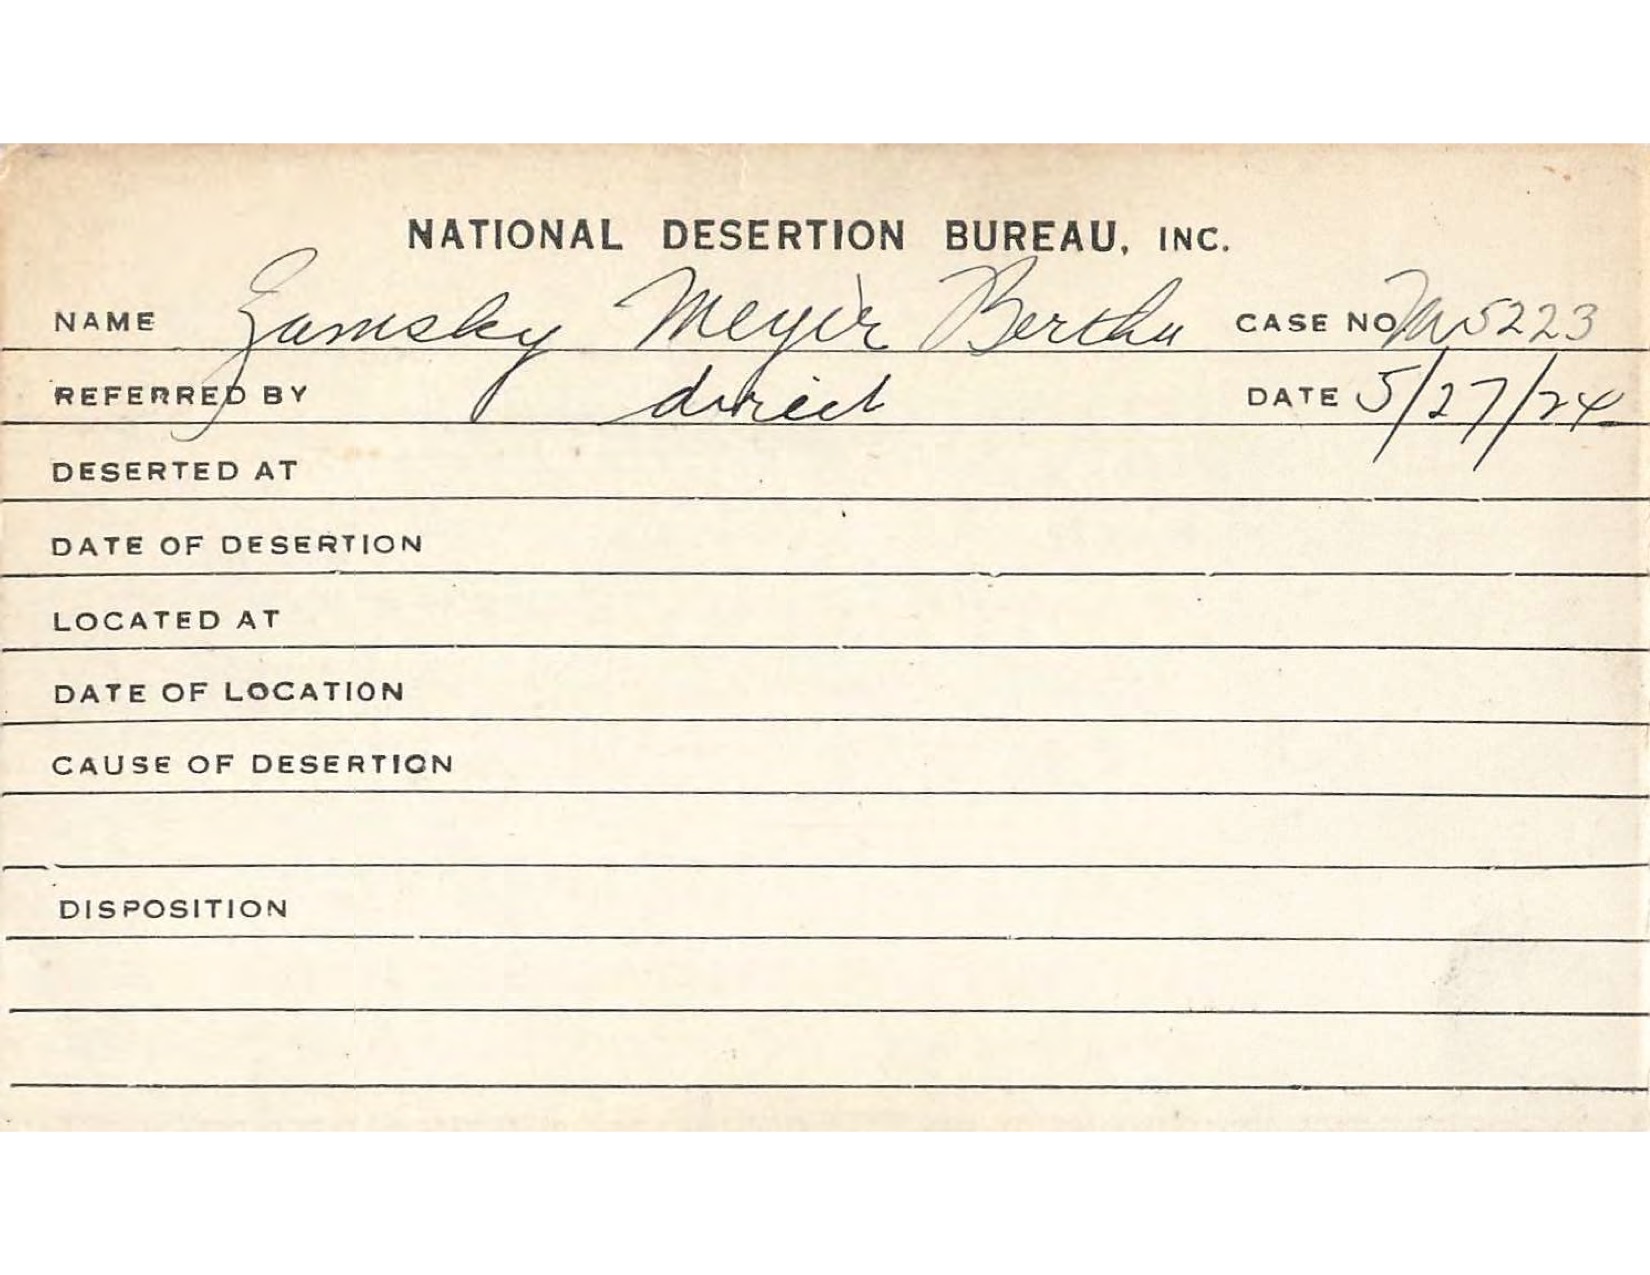 NATIONAL DESERTION BUREAU, INC.
NAME Zamsky Meyer Bertha CASE NO. M5223
REFERRED BY direct DATE 5/27/24
DESERTED AT
DATE OF DESERTION
LOCATED AT
DATE OF LOCATION
CAUSE OF DESERTION
DISPOSITION